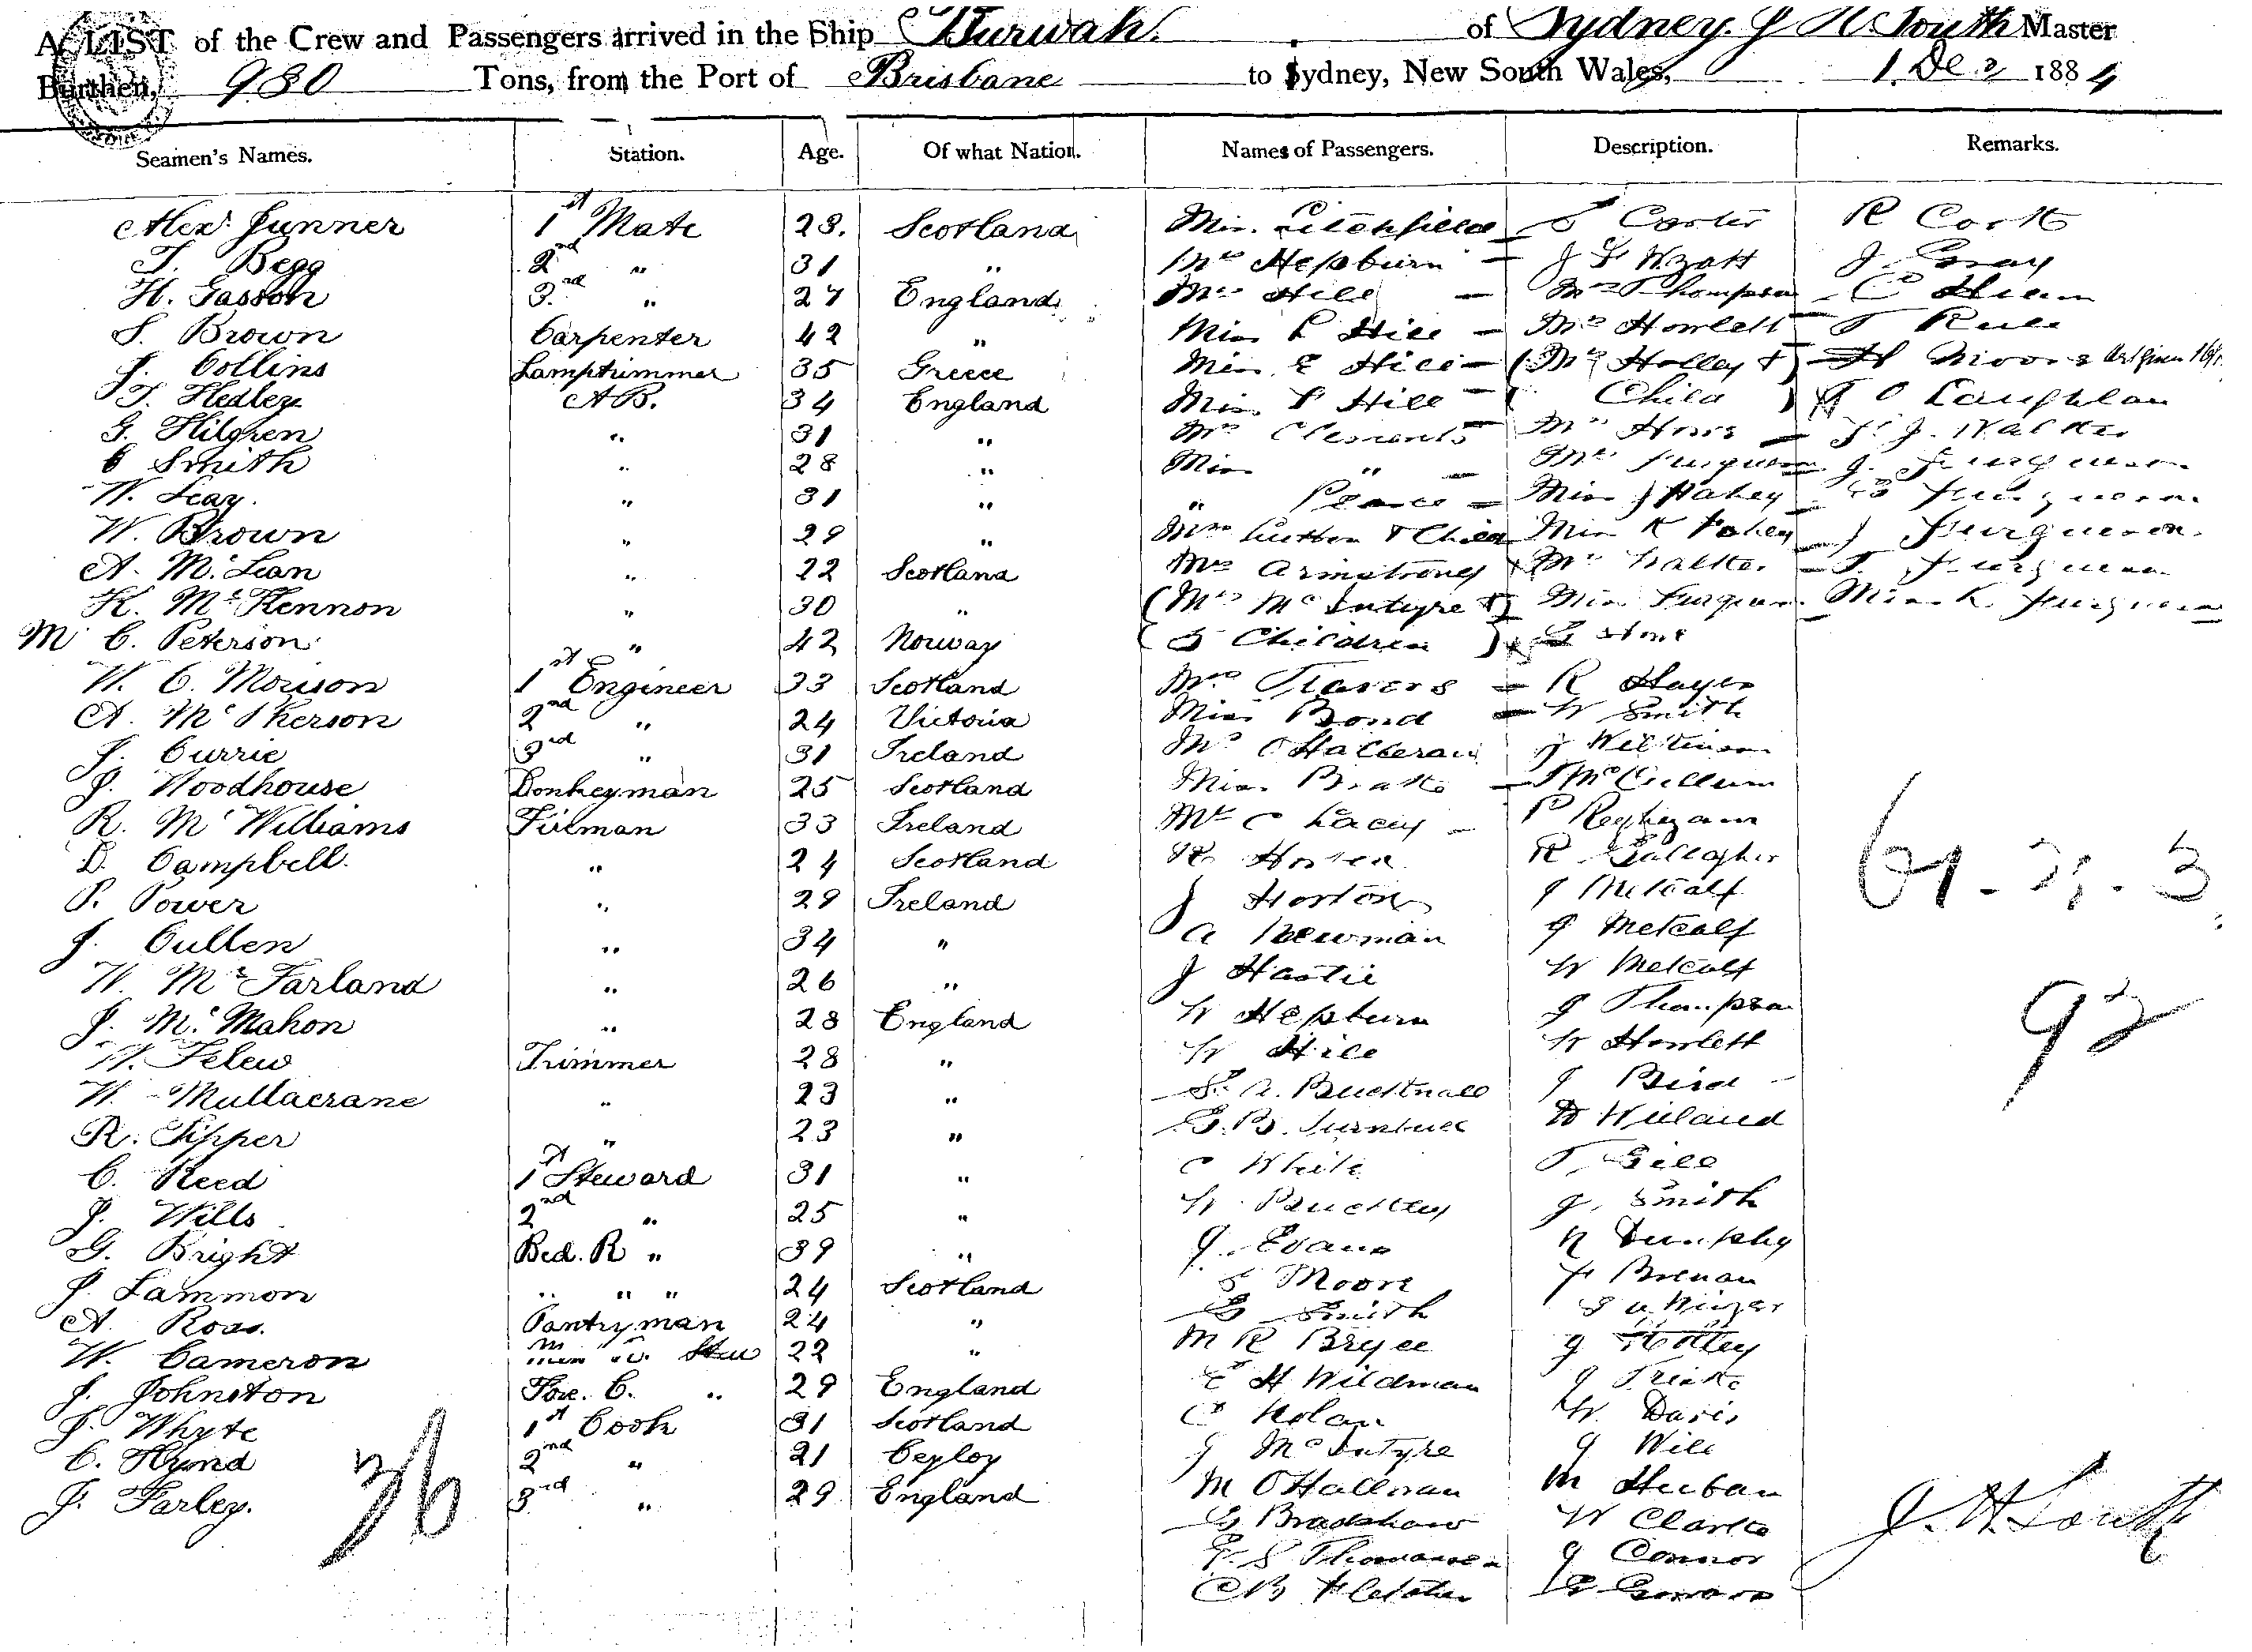 A LIST of the Crew and Passengers arrived in the Ship Burwah. of Sydney. J H South Master
Burthen, 930 Tons, from the Port of Brisbane to Sydney, New South Wales, 1 Dec 1884
Seamen's Names. Station. Age. Of what Nation. Names of Passengers. Description. Remarks.
Alexr. Junner 1st Mate 28. Scotland Miss Litchfield Carter R Cork
T. Begg 2nd " 31 " Mrs Hepburn J F Wyatt J. Gray
H. Gasson 3rd " 27 England Mrs Hill Mrs Thompson C
S. Brown Carpenter 42 " Miss Hill Mrs Howlett T Rule
J. Collins Lamptrimmer 35 Greece Miss E Hill (Mrs Holley & ) H Moore
T. Hedley A.B. 34 England Miss Hill ( Child ) O Laughlan
G. Hilgren " 31 " Mrs Clements Mrs J. Walker
C Smith " 28 " Miss " Mrs Furguson J. Furgueson
W. Leay. " 31 " " Pearce Miss J Fahey Furgueson
W. Brown " 29 " Mrs & Child Miss K Fahey J Furgueson.
A. Mc. Lean " 22 Scotland Mrs Armstrong Mrs Walker T. Furgueson
K. Mc Kennon " 30 " (Mrs McIntyre & Miss Furguson Miss K. Furgueson
M C. Peterson " 42 Norway ( 5 Children ) Stone
W. C. Morison 1st Engineer 33 Scotland Mrs Travers R Hayes
A. Mc Pherson 2nd " 24 Victoria Miss Bond W Smith
J. Currie 3rd " 31 Ireland Mrs O Halleran J Wilkinson
J. Woodhouse Donkeyman 25 Scotland Miss T McCullum
R. Mc Williams Firman 33 Ireland Mr C Lacey P
D. Campbell. " 24 Scotland R Gallagher
P. Power " 29 Ireland J Horton J Metcalf
J. Cullen " 34 " A Newman J Metcalf
W. Mc Farland " 26 " J Hastie W Metcalf
J. Mc. Mahon " 28 England W Hepburn J Thompson
W. Felew Trimmer 28 " W Hill W Howlett
W. Mullacrane " 23 " S. A. Bucknall J Bird
R. Sipper " 23 " G. B. Turnbull Wieland
C. Reed 1st Steward 31 " C White T. Gill
J. Wills 2nd " 25 " W. Buckley J. Smith
G. Bright Bed. R " 39 " J. Evans N Dunphy
J. Lammon " " " 24 Scotland Moore Brenan
A. Ross. Pantryman 24 " G Smith
W. Cameron Stew 22 " M R Bryce J Holley
J. Johnston Fore. C. " 29 England E H Wildman J
J. Whyte 1st Cook 31 Scotland C Nolan W. Davis
C. Hynd 2nd " 21 Ceylon J McIntyre J Will
J. Farley. 3rd " 29 England M O Halloran M
G Bradshaw W Clarke
J Connor
C B Fletcher
36
61
92
J. H. South